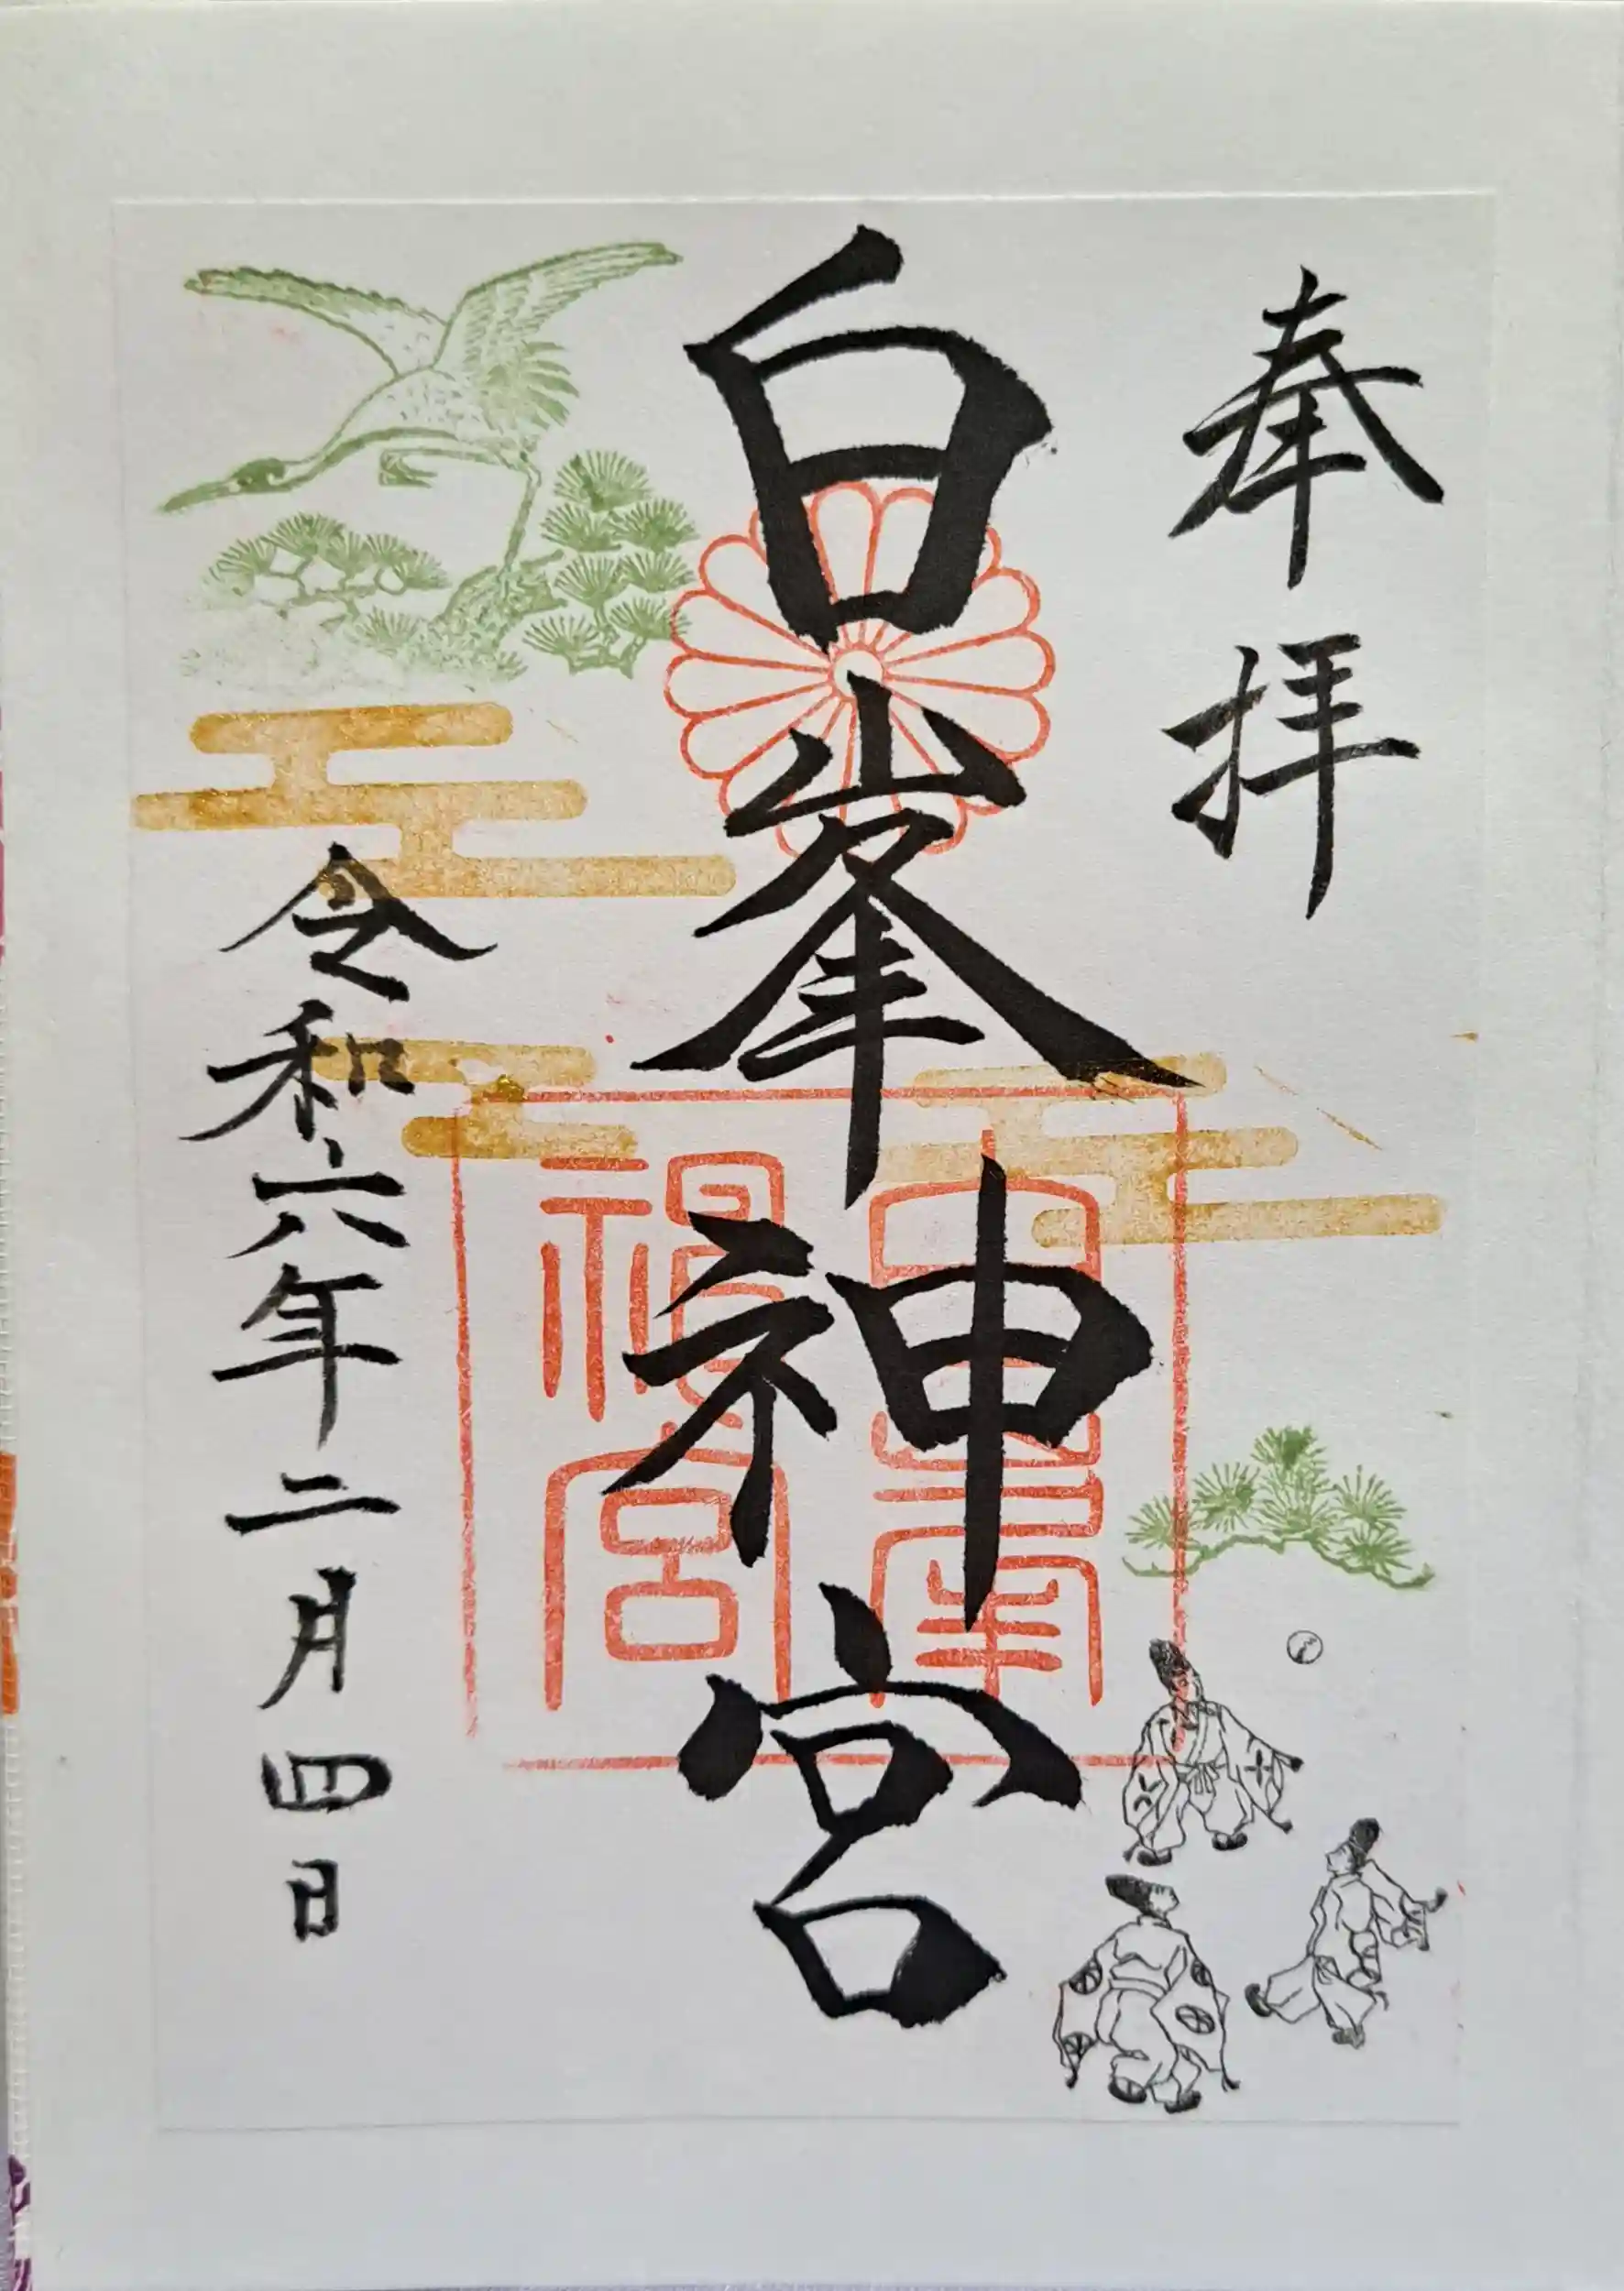 奉拝
白峯神宮
白峯神宮
令和六年二月四日